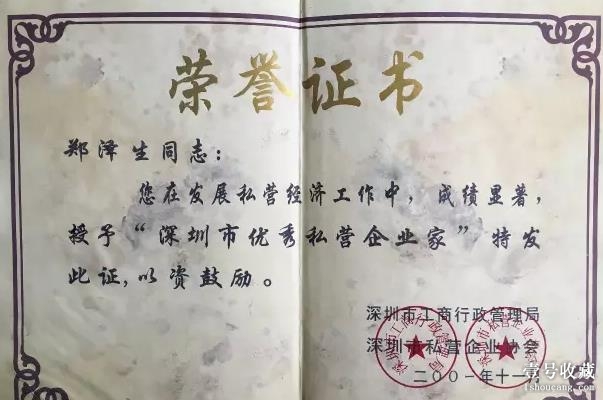 荣誉证书
郑泽生同志：
您在发展私营经济工作中，成绩显著，
授予“深圳市优秀私营企业家”特发
此证，以资鼓励。
深圳市工商行政管理局
深圳市私营企业协会
二〇〇一年十一
壹号收藏
1shoucang.com